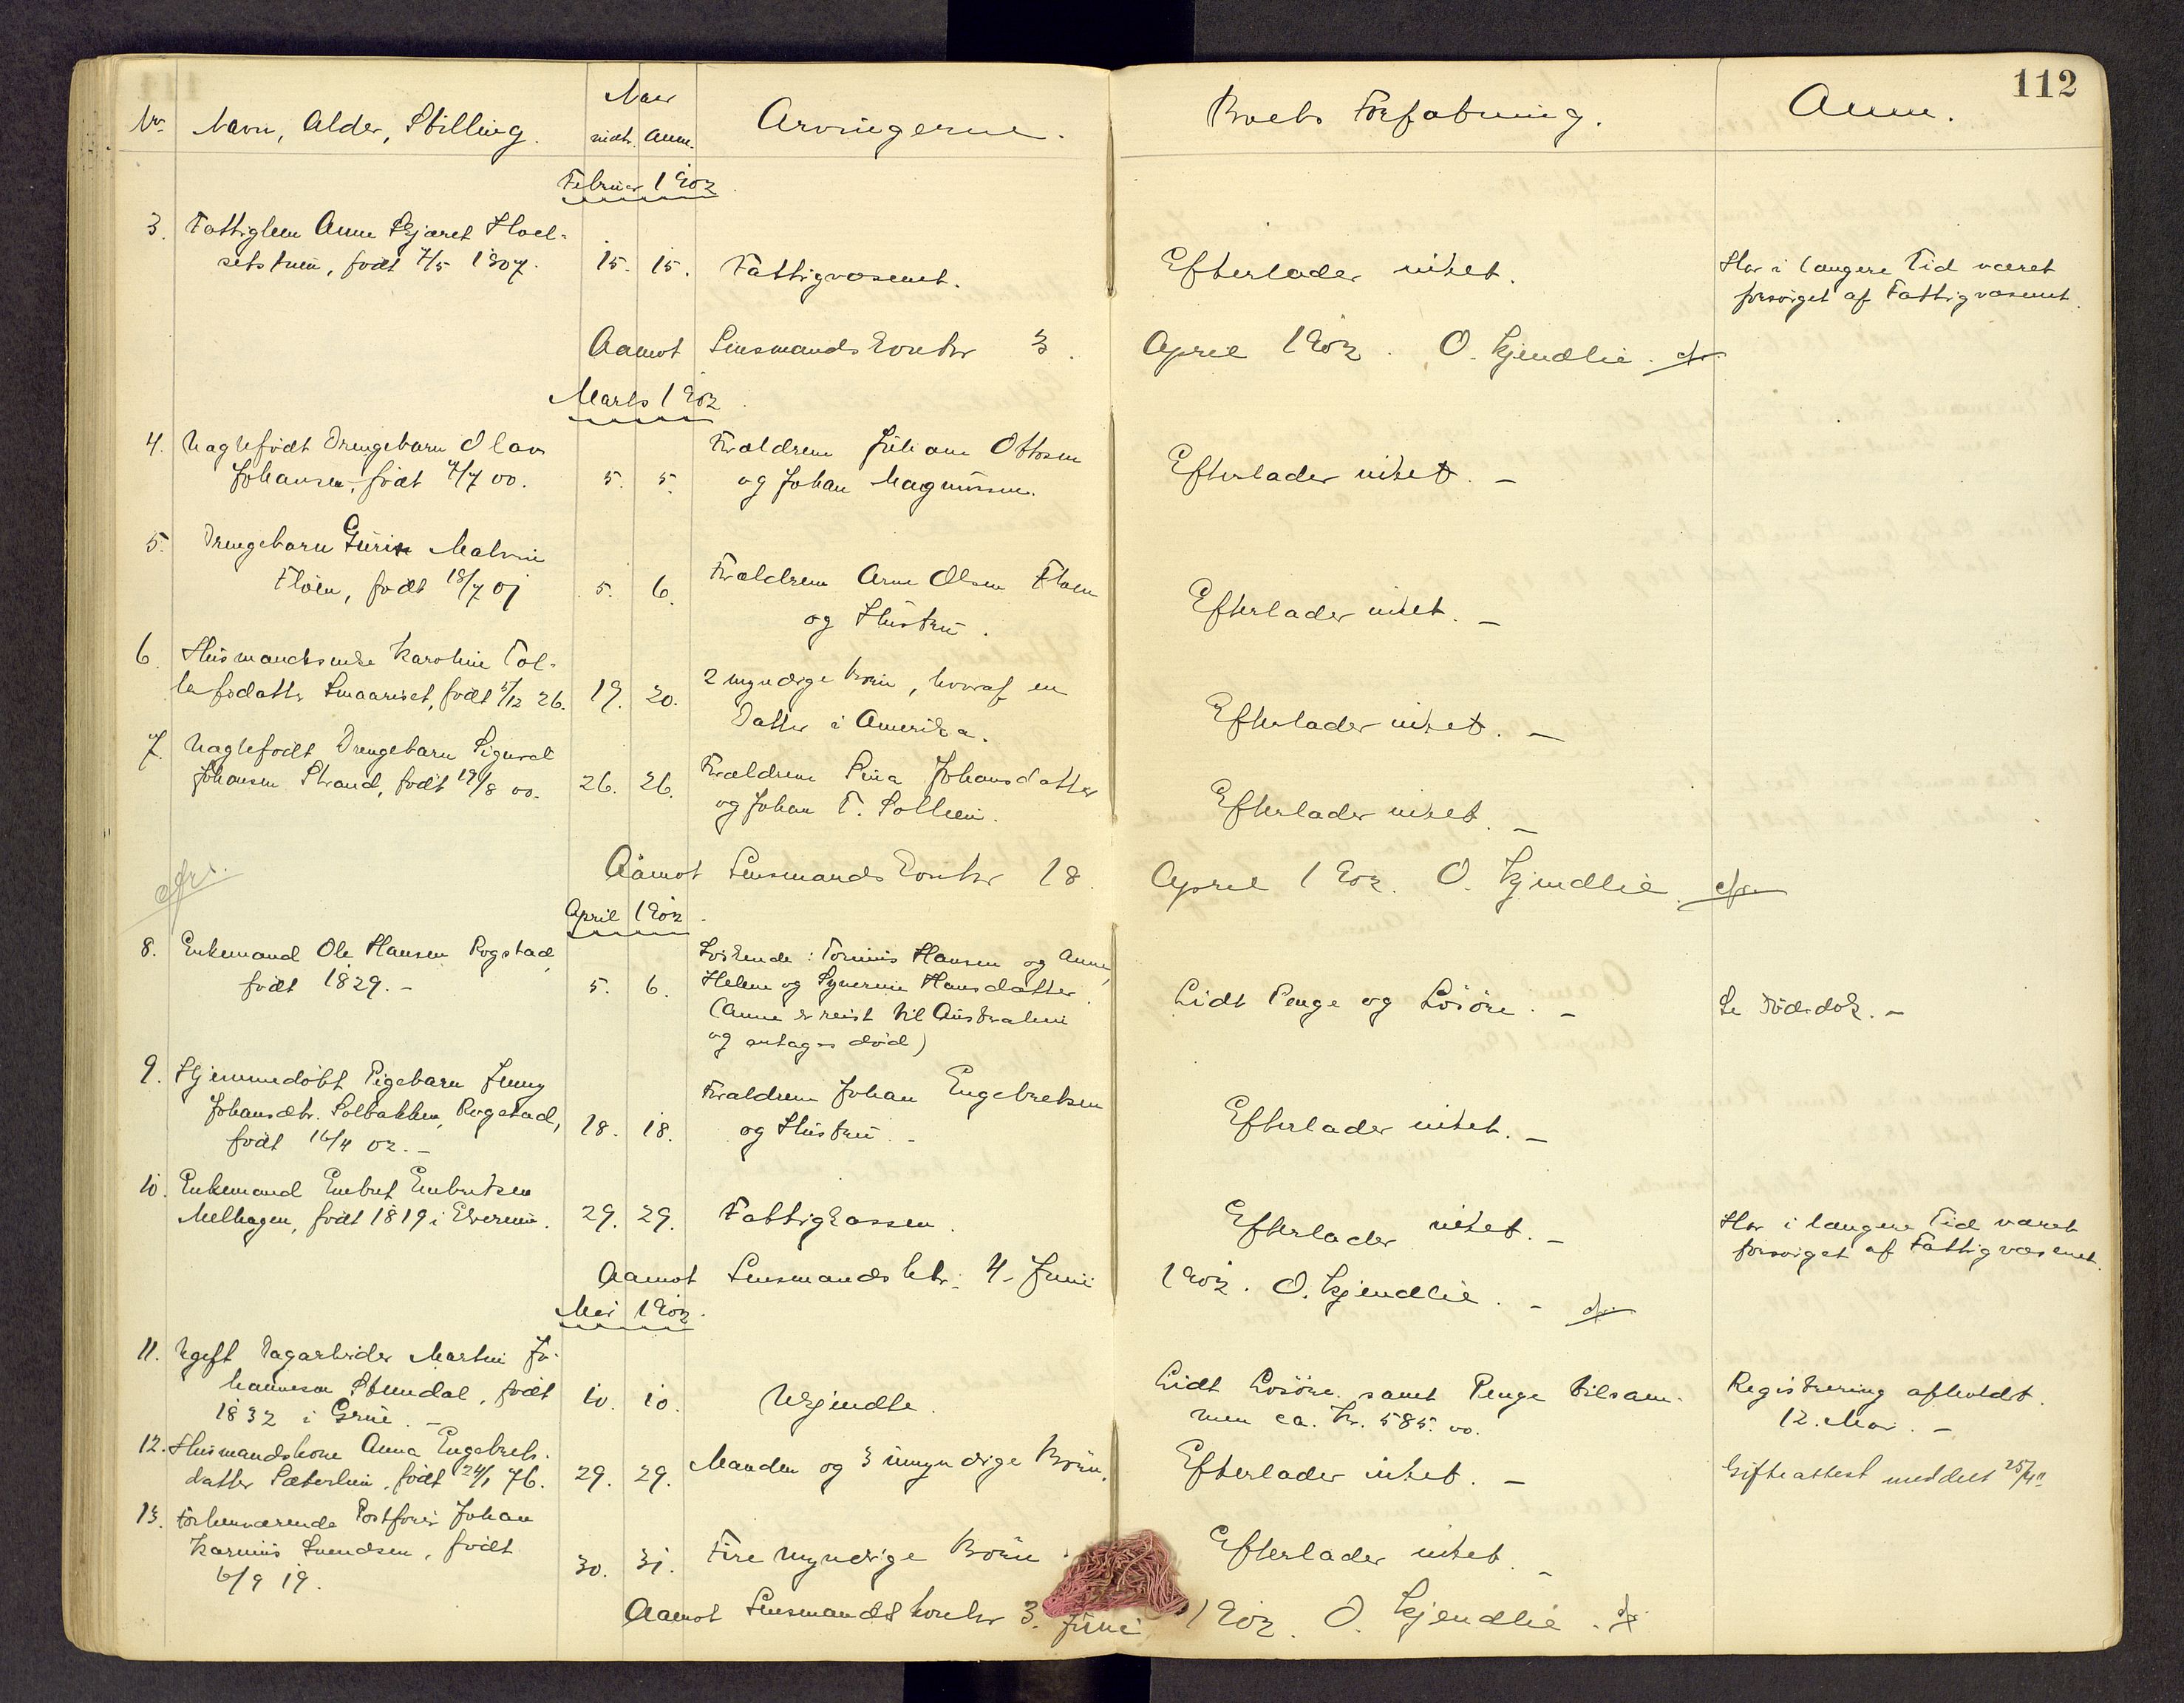 112
No. Navn, Alder, Stilling. Naar indtr. Anm. Arvingerne. Boets Forfatning. Anm.
Februar 1902
3. Fattiglem Anne Kjæret Hoel-
setstuen, født 7/5 1807. 15. 15. Fattigvæsenet. Efterlader intet. Har i længere Tid været
forsørget af Fattigvæsenet.
Aamot Lensmandskontor 3. April 1902. O. Kjendlie.
Marts 1902.
4. Uægtefødt Drengebarn Olav Forældrene Juliane Ottosen
Johansen, født 4/7 00. 5. 5. og Johan Magnussen. Efterlader intet. -
5. Drengebarn Malvin
Fløen, født 18/7 01 5. 6. Forældrene Arne Olsen Fløen
og Hustru. Efterlader intet. -
6. Husmandsenke Karoline Tol-
lefsdatter Smaariset, født 5/12 26. 19. 20. 2 myndige Børn, hvoraf en
Datter i Amerika. Efterlader intet. -
7. Uægtefødt Drengebarn Sigurd
Johansen Strand, født 19/8 00. 26. 26. Forældrene Lina Johansdatter
og Johan T. Sollien. Efterlader intet. -
Aamot Lensmandskontor 18. April 1902. O. Kjendlie.
April 1902.
8. Enkemand Ole Hansen Rogstad, Søskende: Hansen og Anne,
født 1829. - 5. 6. Helene og Syverine Hansdatter.
(Anne er reist til Australien
og antages død) Lidt Penge og Løsøre. - Se Dødsdok. -
9. Hjemmedøbt Pigebarn Jenny
Johansdtr. Solbakken, Rogstad,
født 16/4 02. - 18. 18. Forældrene Johan Engebretsen
og Hustru. - Efterlader intet. -
10. Enkemand Embret Embretsen
Melhagen, født 1819 i Elverum. 29. 29. Fattigkassen. Efterlader intet. - Har i længere Tid været
forsørget af Fattigvæsenet.
Aamot Lensmandsktr. 4. Juni 1902. O. Kjendlie. -
Mai 1902.
11. Ugift Dagarbeider Martin Jo-
hannesen Stendal, født
1832 i Grue. - 10. 10. Ukjendte. Lidt Løsøre samt Penge tilsam-
men ca. Kr. 585.00. Registrering afholdt
12. Mai. -
12. Husmandskone Anna Engebrets-
datter Sæterlien, født 24/1 76. 29. 29. Manden og 3 umyndige Børn. Efterlader intet. - Gifteattest meddelt
13. Forhenværende Postfører Johan
Karinius Svendsen, født
6/9 19. 30. 31. Fire myndige Børn. Efterlader intet. -
Aamot Lensmandskontor 3. Juni 1902. O. Kjendlie.